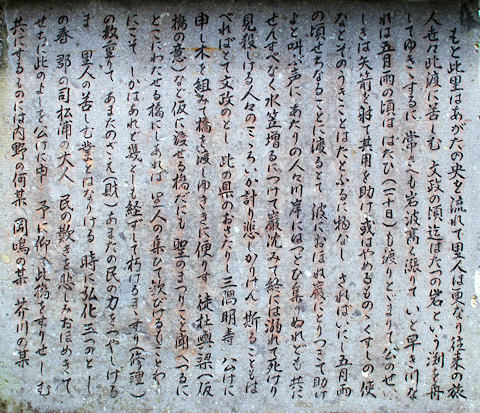 もと此里はあがたの央を流れて里人は更なり往来の旅
人世々此渡に苦しむ 文政の頃迄はたつの岩という渕を舟
してゆきこするに 常さへも岩波高く漲りて いと早き川な
れは五月雨の頃は はたひ(二十日)も渡りとゝまりて公のせい
しきは矢箭を射て其用を助け 或はやめるもの くすしの使
なとそのうきことはたとふるに物なし されはいにし五月雨
の頃せちなることに渡るとて 波におほれ巌にとりつきて助け
よと叫ぶ声に あたりの人々川岸につとひ集りぬれとも 共に
せんすべなく水笠増るにつけて巌沈みて終には溺れて死けり
見捨ける人々のこゝろいか計り悲しかりけん 斯ることもは
べればとて文政のとし 此の県のおさたりし三澙明寺 公けに
申し木を組みて橋を渡しゆききに便りす 徒杜與梁(仮
橋の意)など仮に渡せる橋だにも 聖のまつりこと聞つるに
とこにわたせる橋にしあれば 里人の集ひて歓びけるもことわり
にこそ しかはあれど幾とし経ずして朽けるまゝすり(修理)
の数重りて あまたのざえ(財)あまたの民の力をつやしける
まゝ 里人の苦しむ業とはなりける 時に弘化三つのとし
の春 郡の司松浦の大人 民の歎きを悲しみおほめきて
せちに此のよしを公けに申 予に仰て此橋をすりせしむ
共にするものには内野の何某 岡嶋の某 芥川の某